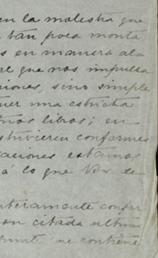 en la molestia que
tan poca monta
s en manera al
al que nos impulsa
ciones, sino simple
una estricta
libros; en
estuvieren conformes
estamos
a lo que Vds de
enteramente confor
citada
se contiene